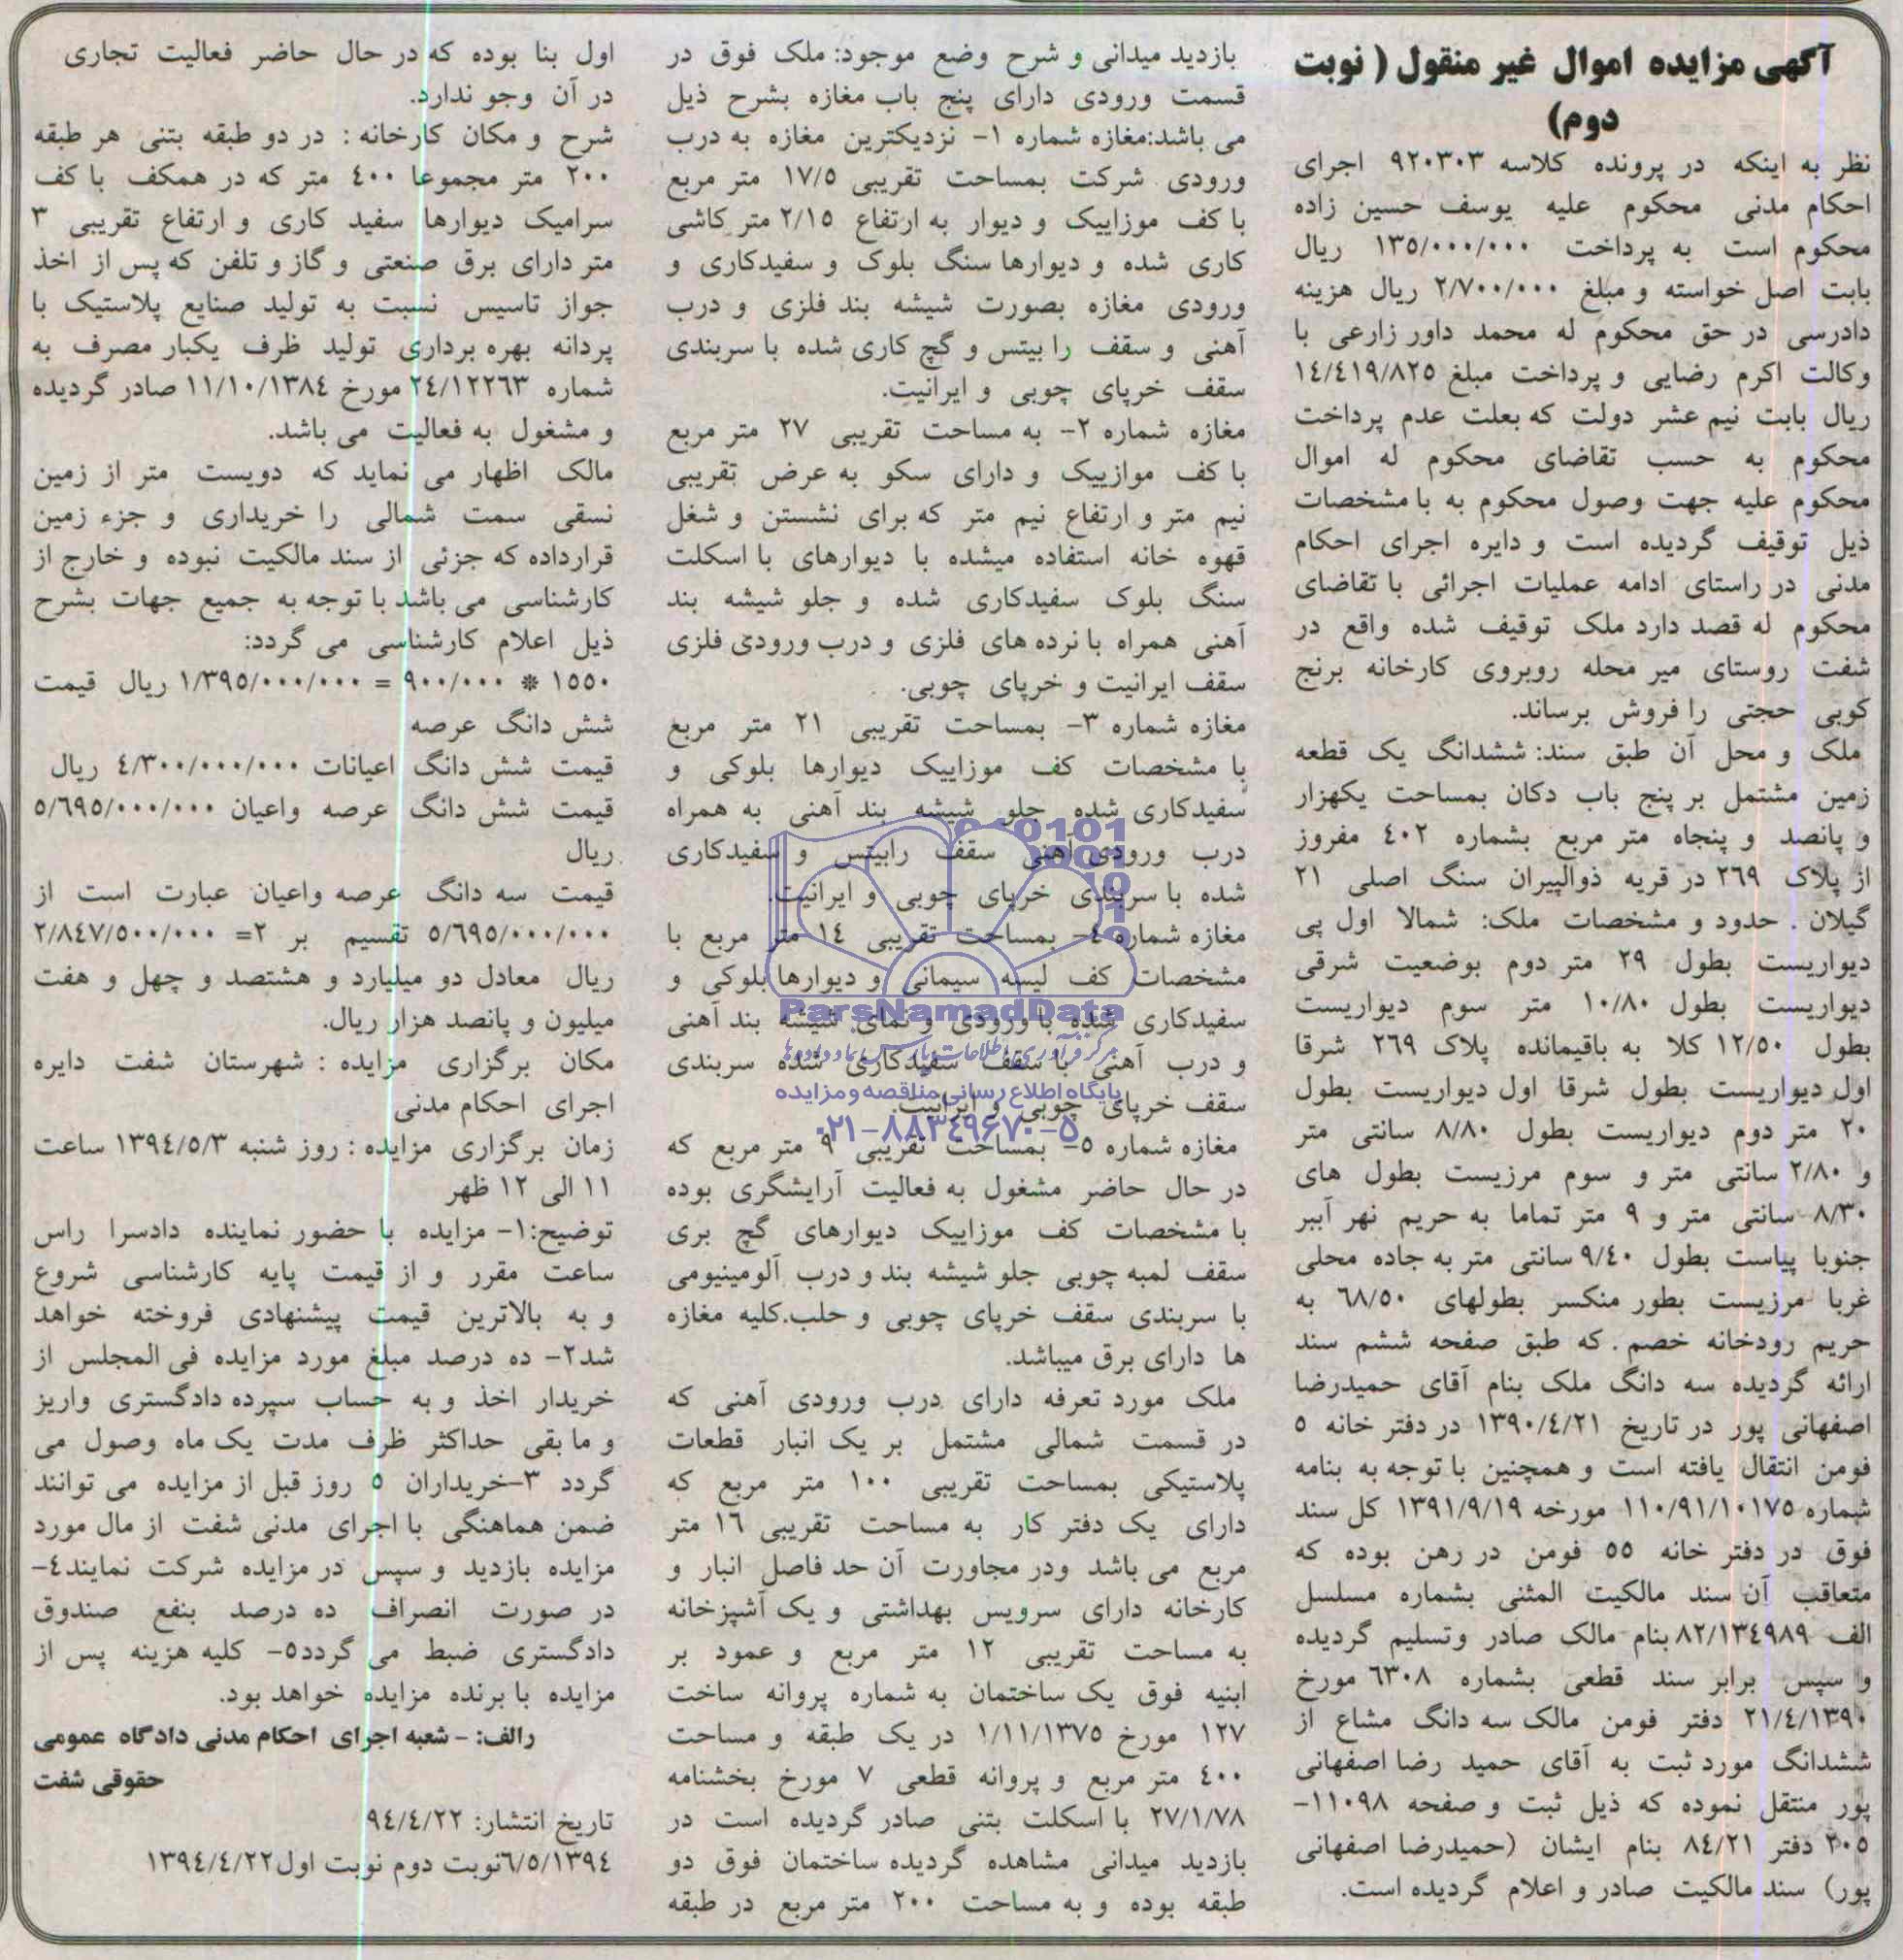 آگهی مزایده اموال غیر منقول ( نوبت
دوم)
نظر به اینکه در پرونده کلاسه ۹۲۰۳۰۳ اجرای
احکام مدنی محکوم علیه یوسف حسین زاده
محکوم است به پرداخت ۱۳۵/۰۰۰/۰۰۰ ریال
بابت اصل خواسته و مبلغ ۲/۷۰۰/۰۰۰ ریال هزینه
دادرسی در حق محکوم له محمد داور زارعی با
وکالت اکرم رضایی و پرداخت مبلغ ۱٤/٤۱۹/۸۲۵
ریال بابت نیم عشر دولت که بعلت عدم پرداخت
محکوم به حسب تقاضای محکوم له اموال
محکوم علیه جهت وصول محکوم به با مشخصات
ذیل توقیف گردیده است و دایره اجرای احکام
مدنی در راستای ادامه عملیات اجرائی با تقاضای
محکوم له قصد دارد ملک توقیف شده واقع در
شفت روستای میر محله روبروی کارخانه برنج
کوبی حجتی را فروش برساند.
ملک و محل آن طبق سند: ششدانگ یک قطعه
زمین مشتمل بر پنج باب دکان بمساحت یکهزار
و پانصد و پنجاه متر مربع بشماره ٤۰۲ مفروز
از پلاک ۲٦۹ در قریه ذوالپیران سنگ اصلی ۲۱
گیلان . حدود و مشخصات ملک: شمالا اول پی
دیواریست بطول ۲۹ متر دوم بوضعیت شرقی
دیواریست بطول ۱۰/۸۰ متر سوم دیواریست
بطول ۱۲/۵۰ کلا به باقیمانده پلاک ۲٦۹ شرقا
اول دیواریست بطول شرقا اول دیواریست بطول
۲۰ متر دوم دیواریست بطول ۸/۸۰ سانتی متر
و ۲/۸۰ سانتی متر و سوم مرزیست بطول های
۸/۳۰ سانتی متر و ۹ متر تماما به حریم نهر آببر
جنوبا پیاست بطول ۹/٤۰ سانتی متر به جاده محلی
غربا مرزیست بطور منکسر بطولهای ٦۸/۵۰ به
حریم رودخانه خصم . که طبق صفحه ششم سند
ارائه گردیده سه دانگ ملک بنام آقای حمیدرضا
اصفهانی پور در تاریخ ۱۳۹۰/٤/۲۱ در دفتر خانه ۵
فومن انتقال یافته است و همچنین با توجه به بنامه
شماره ۱۱۰/۹۱/۱۰۱۷۵ مورخه ۱۳۹۱/۹/۱۹ کل سند
فوق در دفتر خانه ۵۵ فومن در رهن بوده که
متعاقب آن سند مالکیت المثنی بشماره مسلسل
الف ۸۲/۱۳٤۹۸۹ بنام مالک صادر وتسلیم گردیده
و سپس برابر سند قطعی بشماره ٦۳۰۸ مورخ
۲۱/٤/۱۳۹۰ دفتر فومن مالک سه دانگ مشاع از
ششدانگ مورد ثبت به آقای حمید رضا اصفهانی
پور منتقل نموده که ذیل ثبت و صفحه ۱۱۰۹۸-
۳۰۵ دفتر ۸٤/۲۱ بنام ایشان (حمیدرضا اصفهانی
پور) سند مالکیت صادر و اعلام گردیده است.
بازدید میدانی و شرح وضع موجود: ملک فوق در
قسمت ورودی دارای پنج باب مغازه بشرح ذیل
می باشد:مغازه شماره ۱- نزدیکترین مغازه به درب
ورودی شرکت بمساحت تقریبی ۱۷/۵ متر مربع
با کف موزاییک و دیوار به ارتفاع ۲/۱۵ متر کاشی
کاری شده و دیوارها سنگ بلوک و سفیدکاری و
ورودی مغازه بصورت شیشه بند فلزی و درب
آهنی و سقف را بیتس و گچ کاری شده با سربندی
سقف خرپای چوبی و ایرانیت.
مغازه شماره ۲- به مساحت تقریبی ۲۷ متر مربع
با کف موازییک و دارای سکو به عرض تقریبی
نیم متر و ارتفاع نیم متر که برای نشستن و شغل
قهوه خانه استفاده میشده با دیوارهای با اسکلت
سنگ بلوک سفیدکاری شده و جلو شیشه بند
آهنی همراه با نرده های فلزی و درب ورودی فلزی
سقف ایرانیت و خرپای چوبی.
مغازه شماره ۳- بمساحت تقریبی ۲۱ متر مربع
با مشخصات کف موزاییک دیوارها بلوکی و
سفیدکاری شده جلو شیشه بند آهنی به همراه
درب ورودی آهنی سقف رابیتس و سفیدکاری
شده با سربندی خرپای چوبی و ایرانیت.
مغازه شماره ٤- بمساحت تقریبی ۱٤ متر مربع با
مشخصات کف لیسه سیمانی و دیوارها بلوکی و
سفیدکاری شده با ورودی و نمای شیشه بند آهنی
و درب آهنی با سقف سفیدکاری شده سربندی
سقف خرپای چوبی و ایرانیت.
مغازه شماره ۵- بمساحت تقریبی ۹ متر مربع که
در حال حاضر مشغول به فعالیت آرایشگری بوده
با مشخصات کف موزاییک دیوارهای گچ بری
سقف لمبه چوبی جلو شیشه بند و درب آلومینیومی
با سربندی سقف خرپای چوبی و حلب.کلیه مغازه
ها دارای برق میباشد.
ملک مورد تعرفه دارای درب ورودی آهنی که
در قسمت شمالی مشتمل بر یک انبار قطعات
پلاستیکی بمساحت تقریبی ۱۰۰ متر مربع که
دارای یک دفتر کار به مساحت تقریبی ۱٦ متر
مربع می باشد ودر مجاورت آن حد فاصل انبار و
کارخانه دارای سرویس بهداشتی و یک آشپزخانه
به مساحت تقریبی ۱۲ متر مربع و عمود بر
ابنیه فوق یک ساختمان به شماره پروانه ساخت
۱۲۷ مورخ ۱/۱۱/۱۳۷۵ در یک طبقه و مساحت
٤۰۰ متر مربع و پروانه قطعی ۷ مورخ بخشنامه
۲۷/۱/۷۸ با اسکلت بتنی صادر گردیده است در
بازدید میدانی مشاهده گردیده ساختمان فوق دو
طبقه بوده و به مساحت ۲۰۰ متر مربع در طبقه
اول بنا بوده که در حال حاضر فعالیت تجاری
در آن وجو ندارد.
شرح و مکان کارخانه : در دو طبقه بتنی هر طبقه
۲۰۰ متر مجموعا ٤۰۰ متر که در همکف با کف
سرامیک دیوارها سفید کاری و ارتفاع تقریبی ۳
متر دارای برق صنعتی و گاز و تلفن که پس از اخذ
جواز تاسیس نسبت به تولید صنایع پلاستیک با
پردانه بهره برداری تولید ظرف یکبار مصرف به
شماره ۲٤/۱۲۲٦۳ مورخ ۱۱/۱۰/۱۳۸٤ صادر گردیده
و مشغول به فعالیت می باشد.
مالک اظهار می نماید که دویست متر از زمین
نسقی سمت شمالی را خریداری و جزء زمین
قرارداده که جزئی از سند مالکیت نبوده و خارج از
کارشناسی می باشد با توجه به جمیع جهات بشرح
ذیل اعلام کارشناسی می گردد:
۱۵۵۰ * ۹۰۰/۰۰۰ = ۱/۳۹۵/۰۰۰/۰۰۰ ریال قیمت
شش دانگ عرصه
قیمت شش دانگ اعیانات ٤/۳۰۰/۰۰۰/۰۰۰ ریال
قیمت شش دانگ عرصه واعیان ۵/٦۹۵/۰۰۰/۰۰۰
ریال
قیمت سه دانگ عرصه واعیان عبارت است از
۵/٦۹۵/۰۰۰/۰۰۰ تقسیم بر ۲= ۲/۸٤۷/۵۰۰/۰۰۰
ریال معادل دو میلیارد و هشتصد و چهل و هفت
میلیون و پانصد هزار ریال.
مکان برگزاری مزایده : شهرستان شفت دایره
اجرای احکام مدنی
زمان برگزاری مزایده : روز شنبه ۱۳۹٤/۵/۳ ساعت
۱۱ الی ۱۲ ظهر
توضیح:۱- مزایده با حضور نماینده دادسرا راس
ساعت مقرر و از قیمت پایه کارشناسی شروع
و به بالاترین قیمت پیشنهادی فروخته خواهد
شد۲- ده درصد مبلغ مورد مزایده فی المجلس از
خریدار اخذ و به حساب سپرده دادگستری واریز
و ما بقی حداکثر ظرف مدت یک ماه وصول می
گردد ۳-خریداران ۵ روز قبل از مزایده می توانند
ضمن هماهنگی با اجرای مدنی شفت از مال مورد
مزایده بازدید و سپس در مزایده شرکت نمایند٤-
در صورت انصراف ده درصد بنفع صندوق
دادگستری ضبط می گردد۵- کلیه هزینه پس از
مزایده با برنده مزایده خواهد بود.
رالف: - شعبه اجرای احکام مدنی دادگاه عمومی
حقوقی شفت
تاریخ انتشار: ۹٤/٤/۲۲
٦/۵/۱۳۹٤نوبت دوم نوبت اول۱۳۹٤/٤/۲۲
ParsNamadData
مرکز فرآوری اطلاعات پارس نماد داده‌ها
پایگاه اطلاع رسانی مناقصه و مزایده
۰۲۱-۸۸۳۴۹۶۷۰-۵